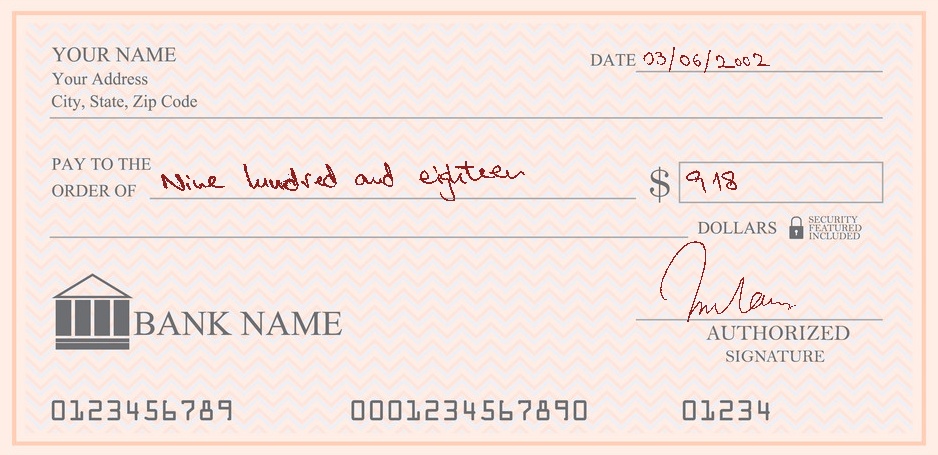 YOUR NAME
Your Address
City, State, Zip Code
DATE 03/06/2002
PAY TO THE ORDER OF Nine hundred and eighteen $ 918
DOLLARS SECURITY FEATURED INCLUDED
BANK NAME
AUTHORIZED SIGNATURE
0123456789 0001234567890 01234